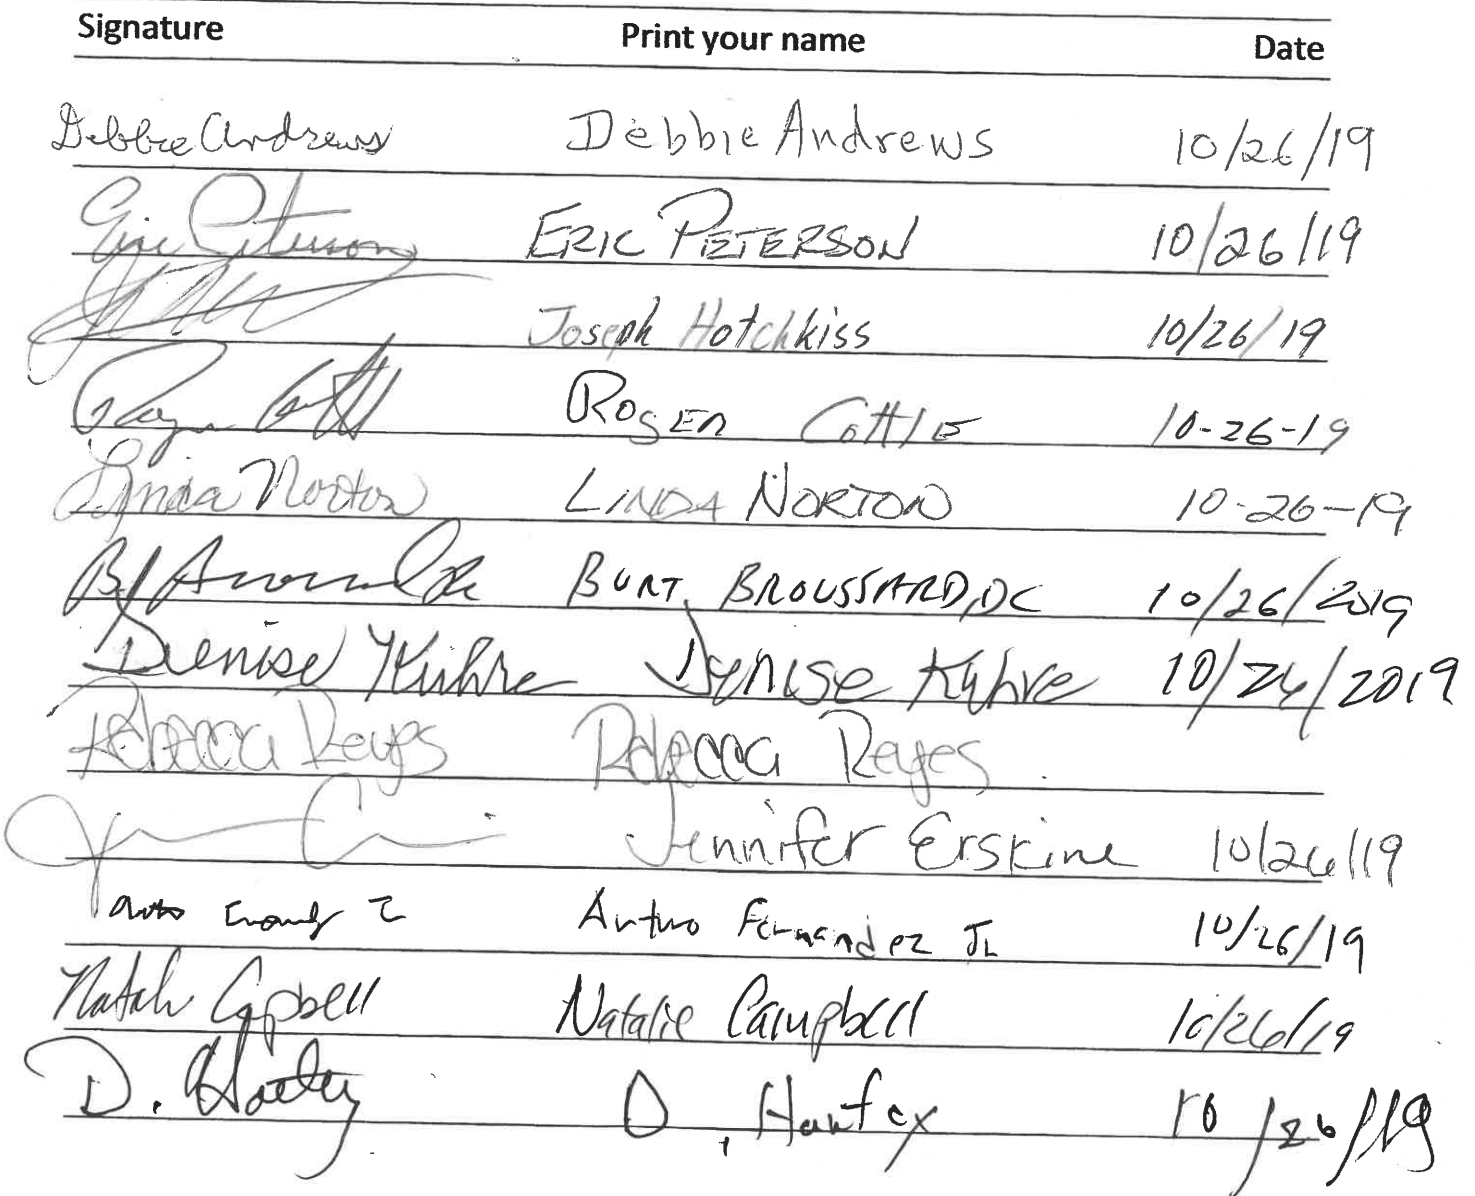 Signature Print your name Date
Debbie Andrews Debbie Andrews 10/26/19
Eric Peterson ERIC PETERSON 10/26/19
Joseph Hotchkiss 10/26/19
Roger Cottle ROGER COTTLE 10-26-19
Linda Norton LINDA NORTON 10-26-19
BURT BROUSSARD, DC 10/26/2019
Denise Kuhre Denise Kuhre 10/26/2019
Rebecca Reyes Rebecca Reyes
Jennifer Erskine 10/26/19
Arturo Fernandez Jr 10/26/19
Natalie Campbell Natalie Campbell 10/26/19
D. D. 10/26/19